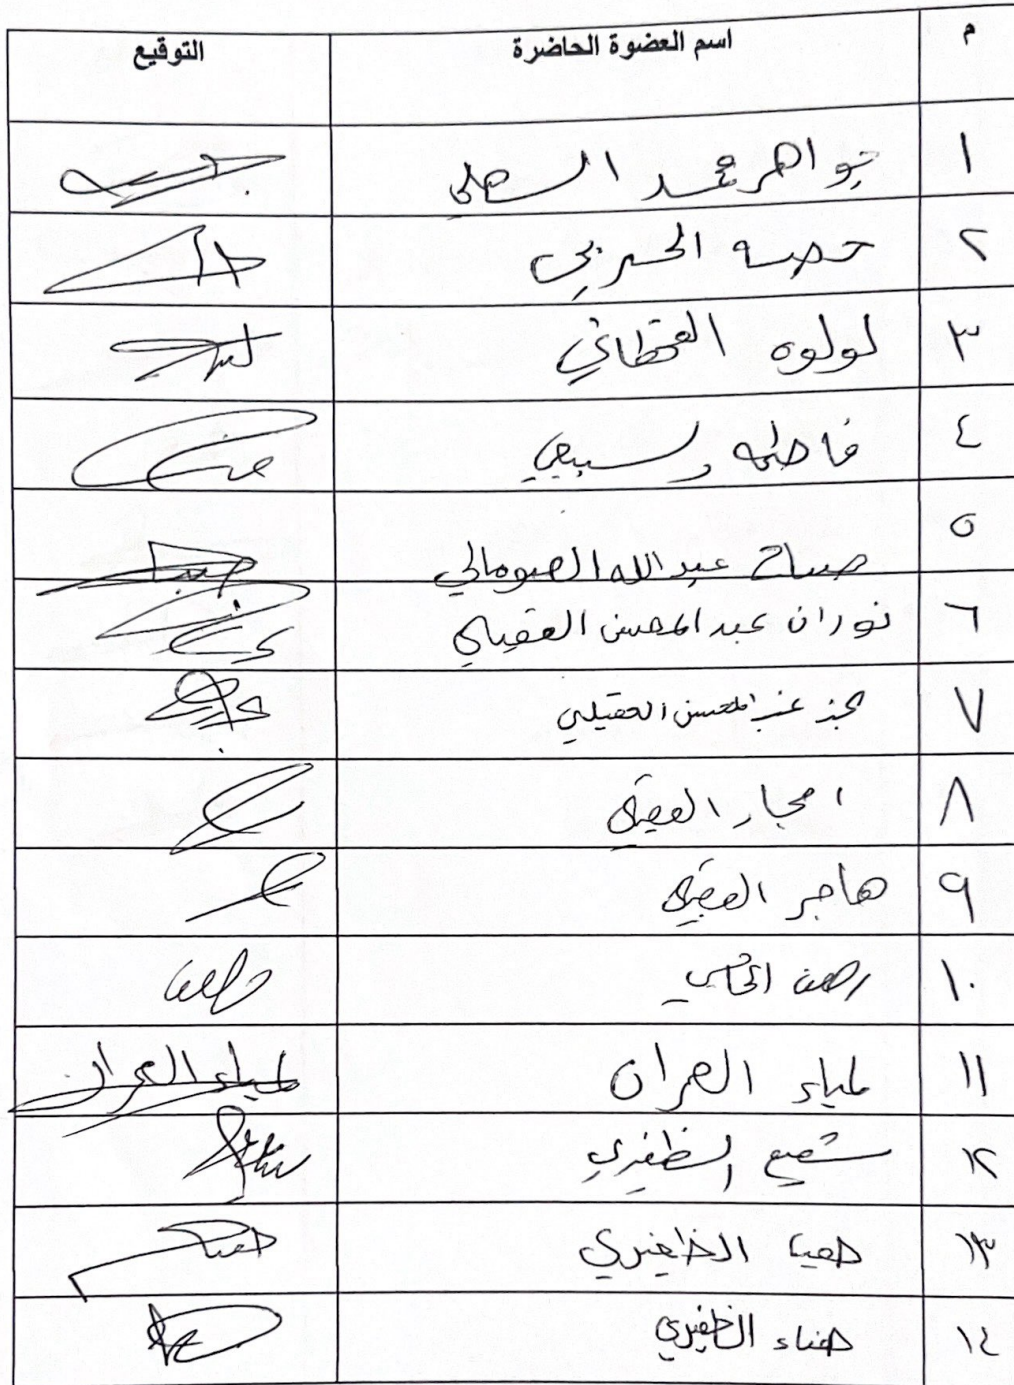 م اسم العضوة الحاضرة التوقيع
١ جواهر محمد السهلي
٢ حصه الحربي
٣ لولوه القحطاني
٤ فاطمه السبيعي
٥ صباح عبدالله الصومالي
٦ نوران عبدالمحسن العقيلي
٧ عبدالمحسن العقيلي
٨ امجاد العقيلي
٩ هاجر العقيلي
١٠
١١ لمياء العمران لمياء العمران
١٢ الظفيري
١٣ هيا الظفيري
١٤ هناء الظفيري